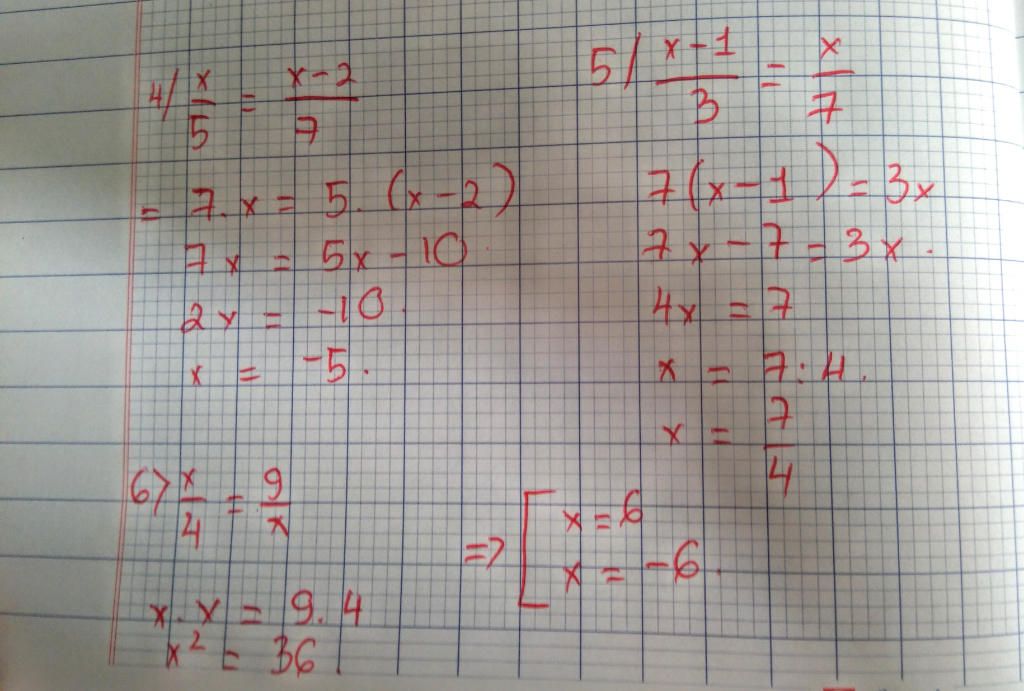 4/ x/5 = (x-2)/7
= 7.x = 5.(x-2)
7x = 5x - 10.
2x = -10.
x = -5.
5/ (x-1)/3 = x/7
7(x-1) = 3x
7x - 7 = 3x.
4x = 7
x = 7:4.
x = 7/4
6> x/4 = 9/x
x.x = 9.4
x² = 36.
=> [ x = 6
x = -6.